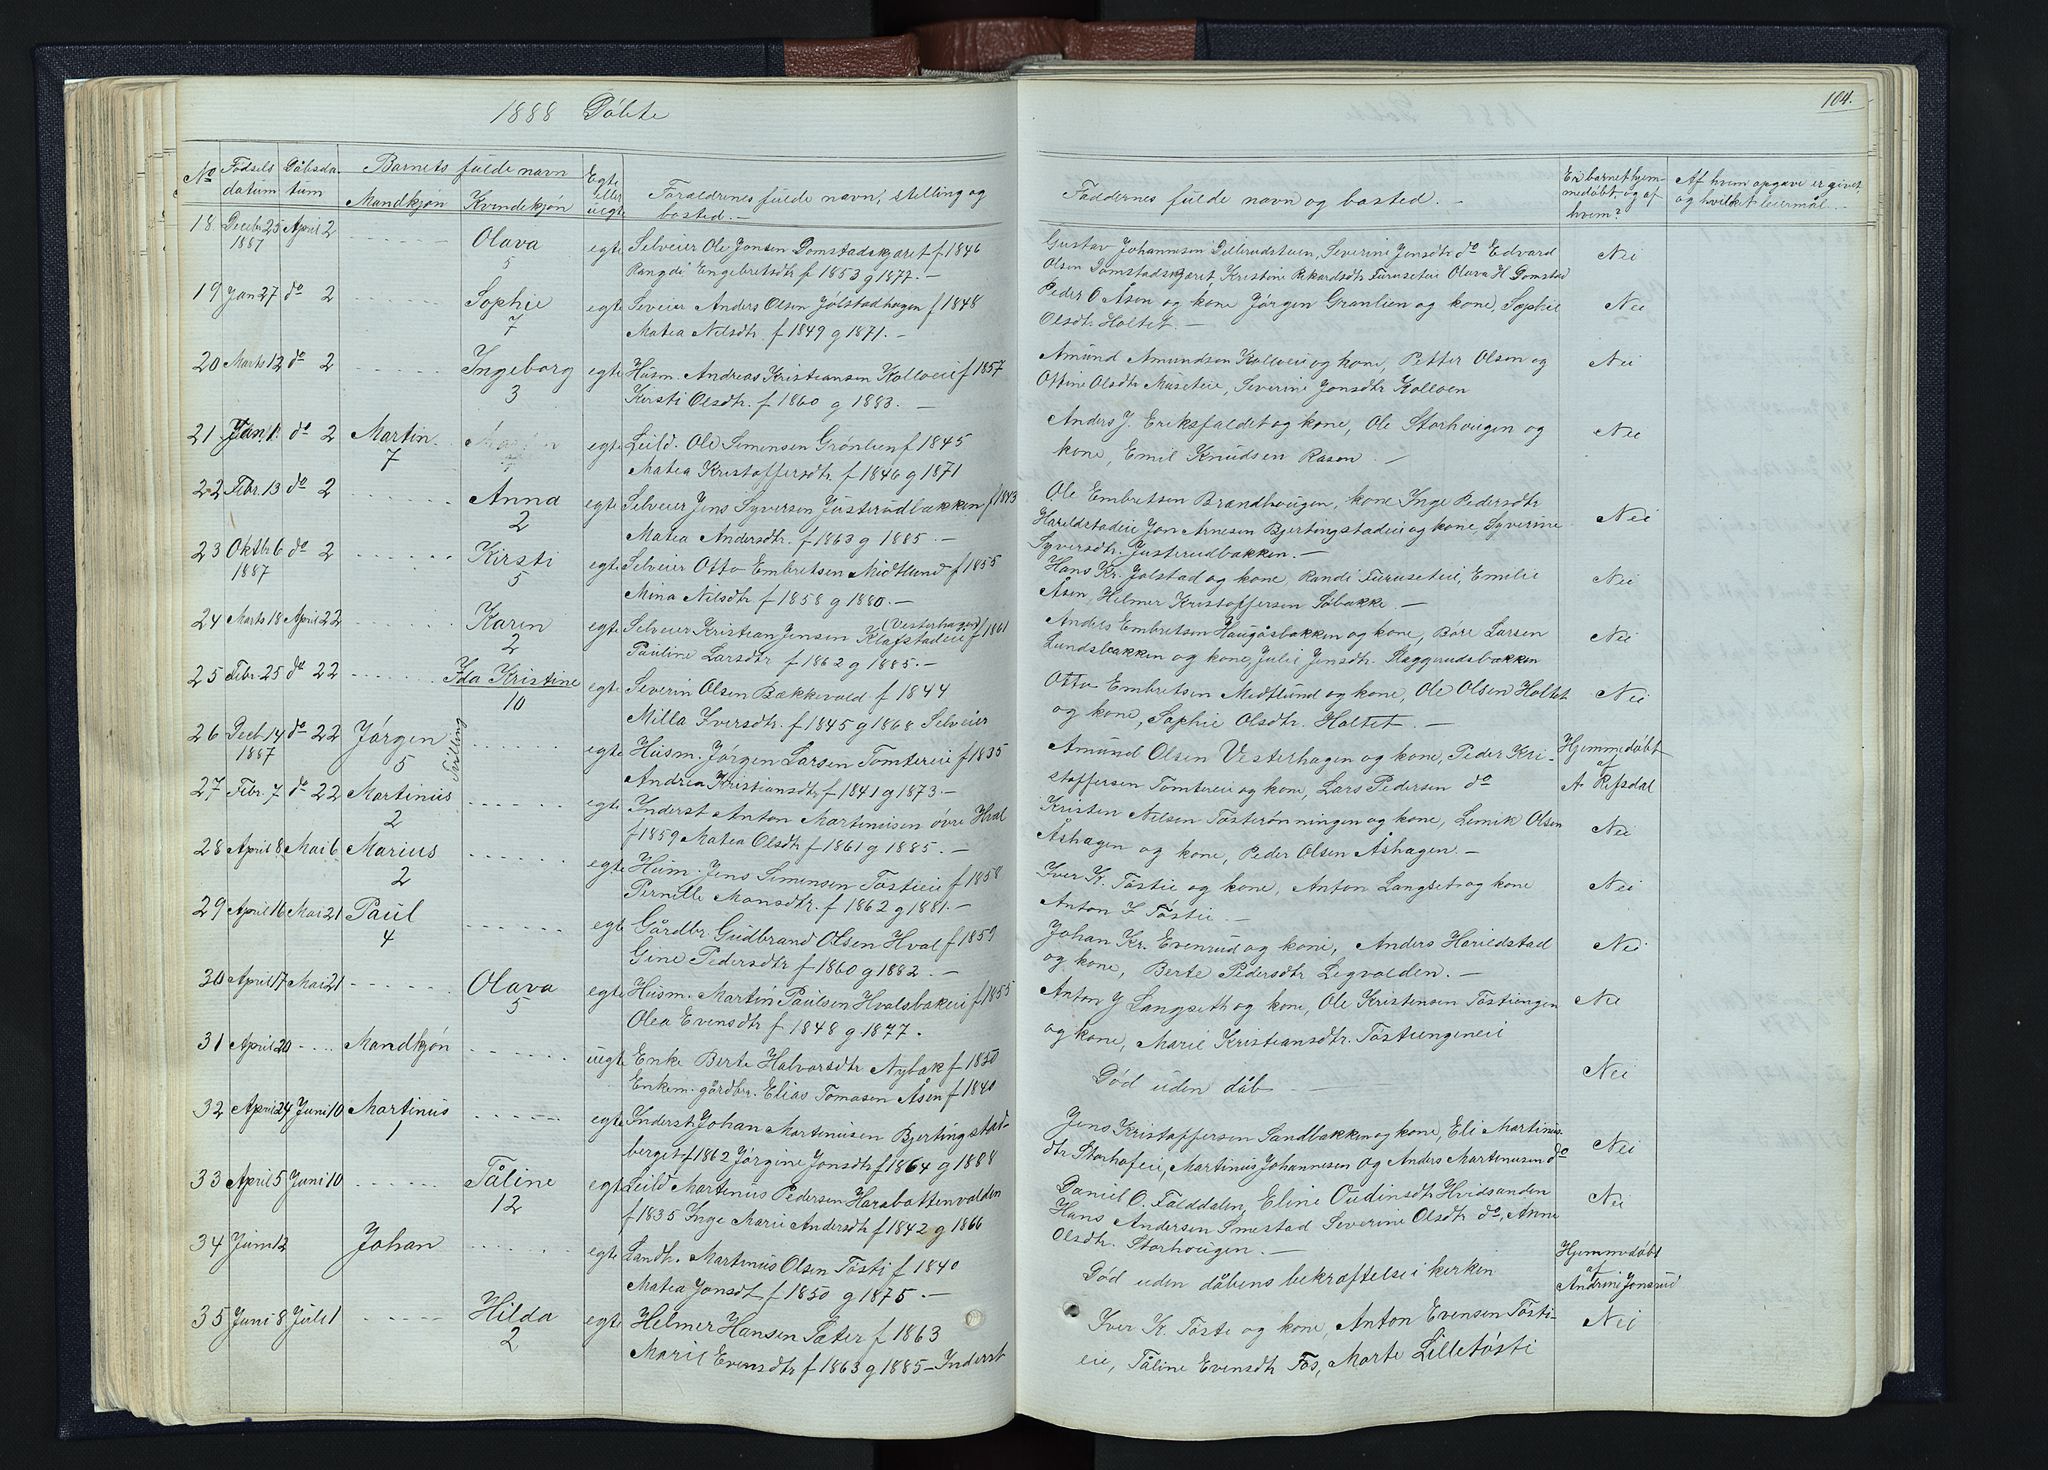 1888 Døbte
No
Fødsels
datum
Dåbsda-
tum
Barnets fulde navn
Mandkjøn
Kvindekjøn
Egte
eller
uegte
Forældrenes fulde navn, stilling og
bosted. —
18. Decbr 25 April 2 Olava egte Selveier Ole Jonsen Domstadskjæret f 1846
1887 5 Rangdi Engebretsdtr f 1853 g 1877. —
19 Jan 27 do 2 Sophie egte Seveier Anders Olsen Jølstadhagen f 1848
7 Matea Nilsdtr f 1849 g 1871. —
20 Marts 12 do 2 Ingeborg egte Husm. Andreas Kristiansen Kolloeie f 1857
3 Kirsti Olsdtr. f 1860 g 1883. —
21 Jan 1. do 2 Martin egte Leild. Ole Simensen Grønlien f 1845
7 Matea Kristoffersdtr f 1846 g 1871
22 Febr. 13 do 2 Anna egte Selveier Jens Syversen Justerudbakken f 1843
2 Matea Andersdtr. f 1863 g 1885. —
23 Oktbr 6 do 2 Kirsti egte Selveier Otto Embretsen Midtlund f 1855
1887 5 Mina Nilsdtr f 1858 g 1880. —
24 Marts 18 April 22 Karen egte Selveier Kristian Jensen Klafstadeie (Vesterhagen) f 1861
2 Pauline Larsdtr f 1862 g 1885. —
25 Febr. 25 do 22 Ida Kristine egte Severin Olsen Bækkevold f 1844
10 Milla Iversdtr. f 1845 g 1868 Selveier
26 Decb 14 do 22 Jørgen Tvilling egte Husm. Jørgen Larsen Tomtereie f 1835
1887 5 Andrea Kristiansdtr f 1841 g 1873. —
27 Febr. 7 do 22 Martinus egte Inderst Anton Martinusen øvre Hval
2 f 1859 Matea Olsdtr f 1861 g 1885. —
28 April 8 Mai 6 Marius egte Husm. Jens Simensen Tøstieie f 1858
2 Pernille Monsdtr. f 1862 g 1881. —
29 April 16 Mai 21 Paul egte Gårdbr. Gudbrand Olsen Hval f 1859
4 Gine Pedersdtr f 1860 g 1882. —
30 April 17 Mai 21 Olava egte Husm. Martin Paulsen Hvalsbakeie f 1855
5 Olea Evensdtr f 1848 g 1877.
31 April 20 Mandkjøn uegte Enke Berte Halvorsdtr Nybak f 1850
Enkem. gårdbr. Elias Tomasen Åsen f 1840
32 April 24 Juni 10 Martinus egte Inderst Johan Martinusen Bjertingstad-
1 berget f 1862 Jørgine Jonsdtr f 1864 g 1888
33 April 5 Juni 10 Tåline egte Leild Martinus Pedersen Harabottenvolden
12 f 1835 Inge Marie Andersdtr f 1842 g 1866
34 Juni 12 Johan egte Landh. Martinus Olsen Tøsti f 1840
Matea Jonsdt f 1850 g 1875. —
35 Juni 8 Juli 1 Hilda egte Helmer Hansen Sæter f 1863
2 Marie Evensdtr f 1863 g 1885 — Inderst
104.
Faddernes fulde navn og bosted. —
Er barnet hjem-
medøbt, og af
hvem?
Af hvem opgave er givet,
og hvilket leiermål. —
Gustav Johannesen Delbrudstuen, Severine Jensdtr do Edvard Nei
Olsen Domstadskjæret, Kristine Rikardsdtr Furuseteie Olava H Domstad
Peder O Åsen og kone Jørgen Granlien og kone, Sophie Nei
Olsdtr. Holtet. —
Amund Amundsen Kolloeie og kone, Petter Olsen og Nei
Ottine Olsdtr Museteie, Severine Jonsdtr Kolloen
Anders J. Eriksfaldet og kone, Ole Storhougen og Nei
kone, Emil Knudsen Rasen. —
Ole Embretsen Brændhougen, kone Inge Pedersdtr Nei
Hareldstadeie Jon Arnesen Bjertingstadeie og kone, Syverine
Syversdtr. Justerudbakken. —
Hans Kr. Jølstad og kone, Randi Furuseteie, Emelie Nei
Åsen, Helmer Kristoffersen Søbakke. —
Anders Embretsen Haugåsbakken og kone, Børe Larsen Nei
Lundsbakken og kone, Julie Jensdtr. Skaggrudsbakken
Otto Embretsen Midtlund og kone, Ole Olsen Holtet Nei
og kone, Sophie Olsdtr. Holtet. —
Amund Olsen Vesterhagen og kone, Peder Kri- Hjemmedøbt
stoffersen Tomtereie og kone, Lars Pedersen do af A Refsdal
Kristen Nilsen Tøsterønningen og kone, Lemik Olsen Nei
Åshagen og kone, Peder Olsen Åshagen. —
Iver K. Tøstie og kone, Anton Langset og kone Nei
Anton I Tøstie. —
Johan Kr. Evenrud og kone, Anders Harildstad Nei
og kone, Berte Pedersdtr Legvolden. —
Anton J Langseth og kone, Ole Kristensen Tøstiengen Nei
og kone, Marie Kristiansdtr. Tøstiengeneie
Død uden dåb — Nei
Jens Kristoffersen Sandbakken og kone, Eli Martinus- Nei
dtr Storhofeie, Martinus Johannesen og Anders Martinusen do
Daniel O. Falddalen, Eline Oudinsdtr Hvidsanden Nei
Hans Andersen Smestad Severine Olsdtr do, Anne
Olsdtr. Storhougen. —
Død uden dåbens bekræftelse i kirken Hjemmedøbt af Andrine Jonsrud
Iver K. Tøste og kone, Anton Evensen Tøsti- Nei
eie, Tåline Evensdtr Fos, Marte Lilletøsti